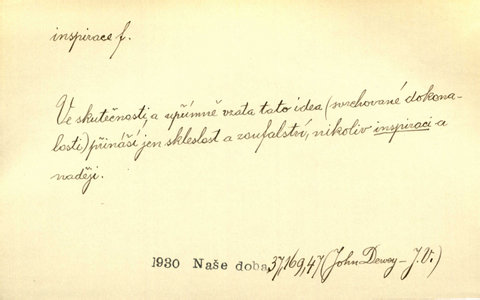 inspirace f.
Ve skutečnosti a upřímně vzata tato idea (svrchované dokona-
losti) přináší jen skleslost a zoufalství, nikoliv inspiraci a
naději.
1930 Naše doba 37,169,47 (John Dewey – J.V.)